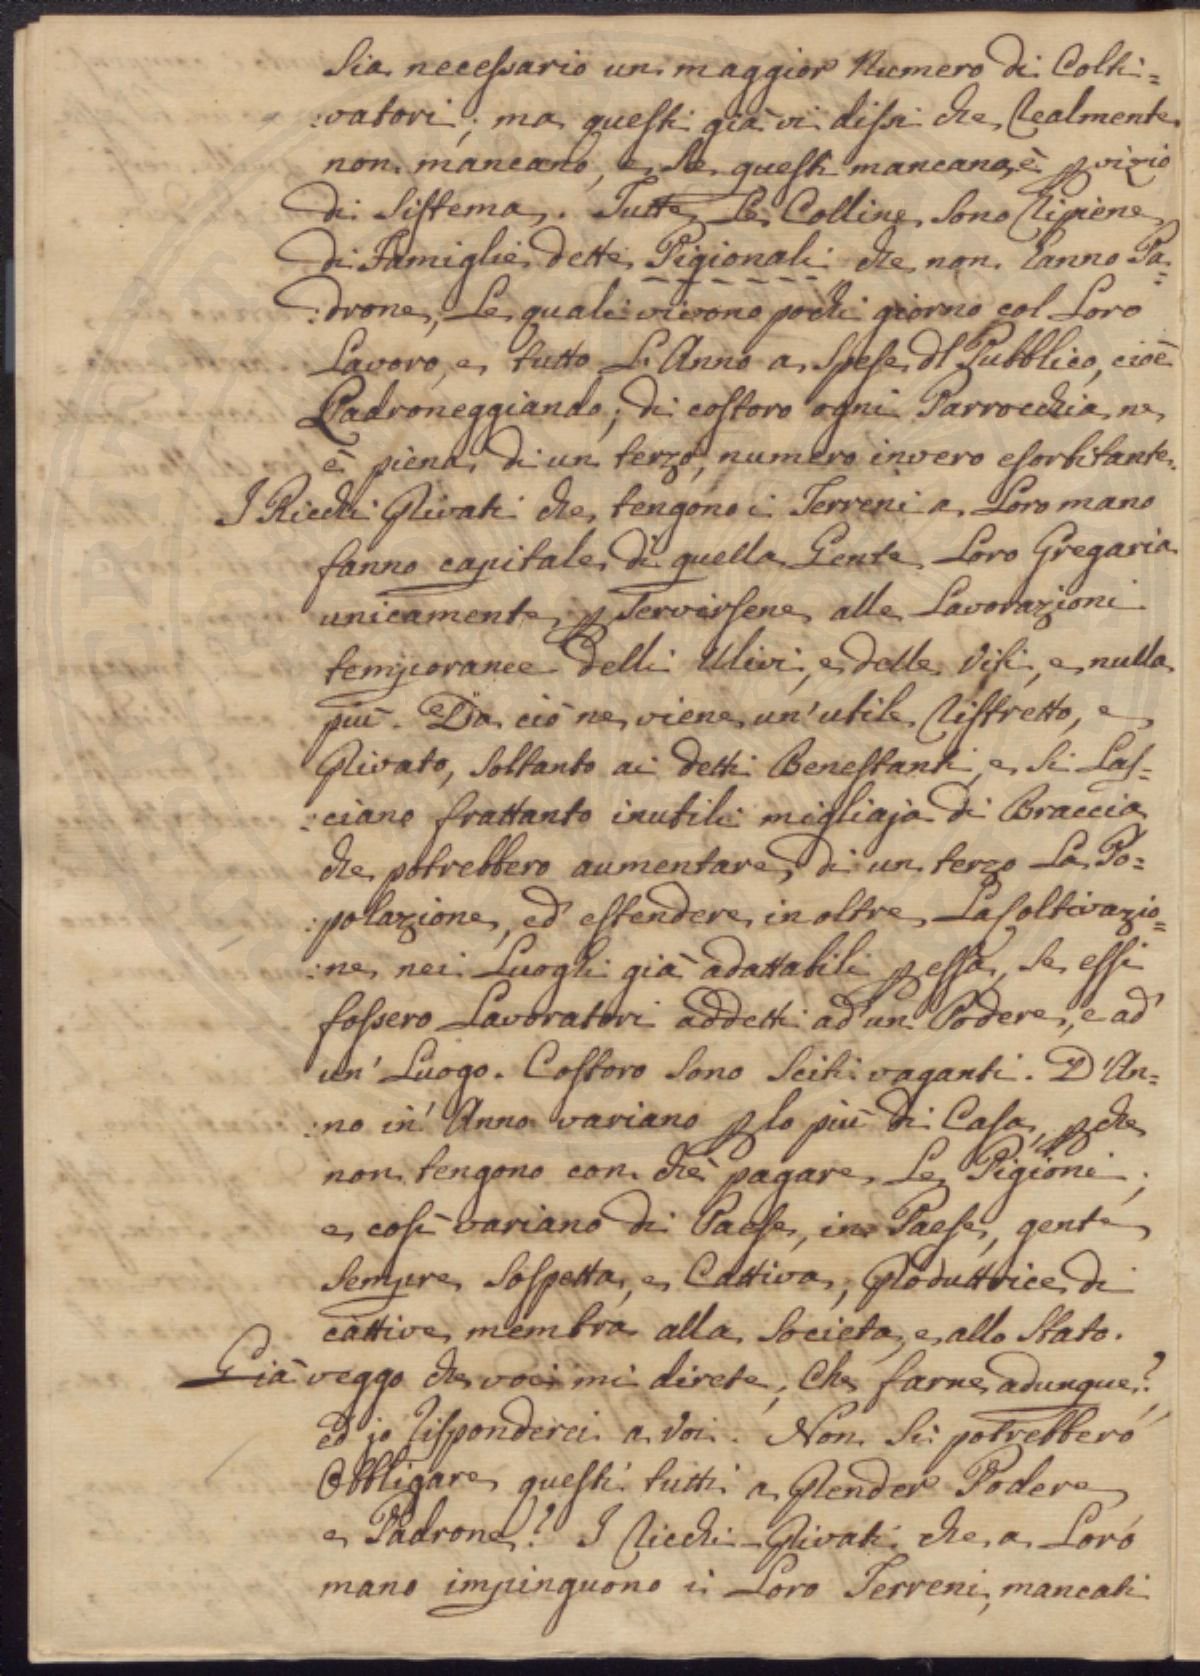 Sia necessario un maggior Numero di Colti=
:vatori; ma questi già vi dissi che realmente
non mancano, e se questi mancano, è p vizio
di Sistema. Tutte Le Colline sono ripiene
di Famiglie dette Pigionali che non hanno Pa=
:drone, Le quali vivono pochi giorno col Loro
Lavoro, e tutto L'Anno a spese dl Pubblico, cioè
Ladroneggiando; di costoro ogni Parrocchia ne
è piena di un terzo, numero invero esorbitante.
I Ricchi Privati che tengono i Terreni a Loro mano
fanno capitale di quella Gente Loro Gregaria
unicamente p Servirsene alle Lavorazioni
temporanee delli Ulivi, e delle Viti, e nulla
più. Da ciò ne viene un'utile ristretto, e
Privato, soltanto ai detti Benestanti, e si Las=
:ciano frattanto inutili migliaja di Braccia
che potrebbero aumentare di un terzo La Po=
:polazione, ed estendere in oltre La Coltivazio=
:ne nei Luoghi già adattabili p essa, se essi
fossero Lavoratori addetti ad un Podere, e ad
un' Luogo. Costoro sono Sciti vaganti. D'An=
:no in' Anno variano p lo più di Casa, pche
non tengono con che pagare Le Pigioni;
e così variano di Paese, in Paese, gente
sempre sospetta, e Cattiva, Produttrice di
cattive membra alla Società, e allo Stato.
Già veggo che voi mi direte, Che farne adunque?
ed io risponderei a voi. Non si potrebbero
Obbligare questi tutti a Prender Podere
e Padrone? I ricchi Privati che a Loro
mano impinguono i Loro Terreni, mancati